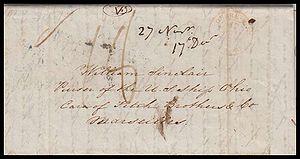 27 Nov.
17 Dec
William Sinclair
Purser of the U.S. Ship Ohio
Care of Fitch Brothers & Co
Marseilles.